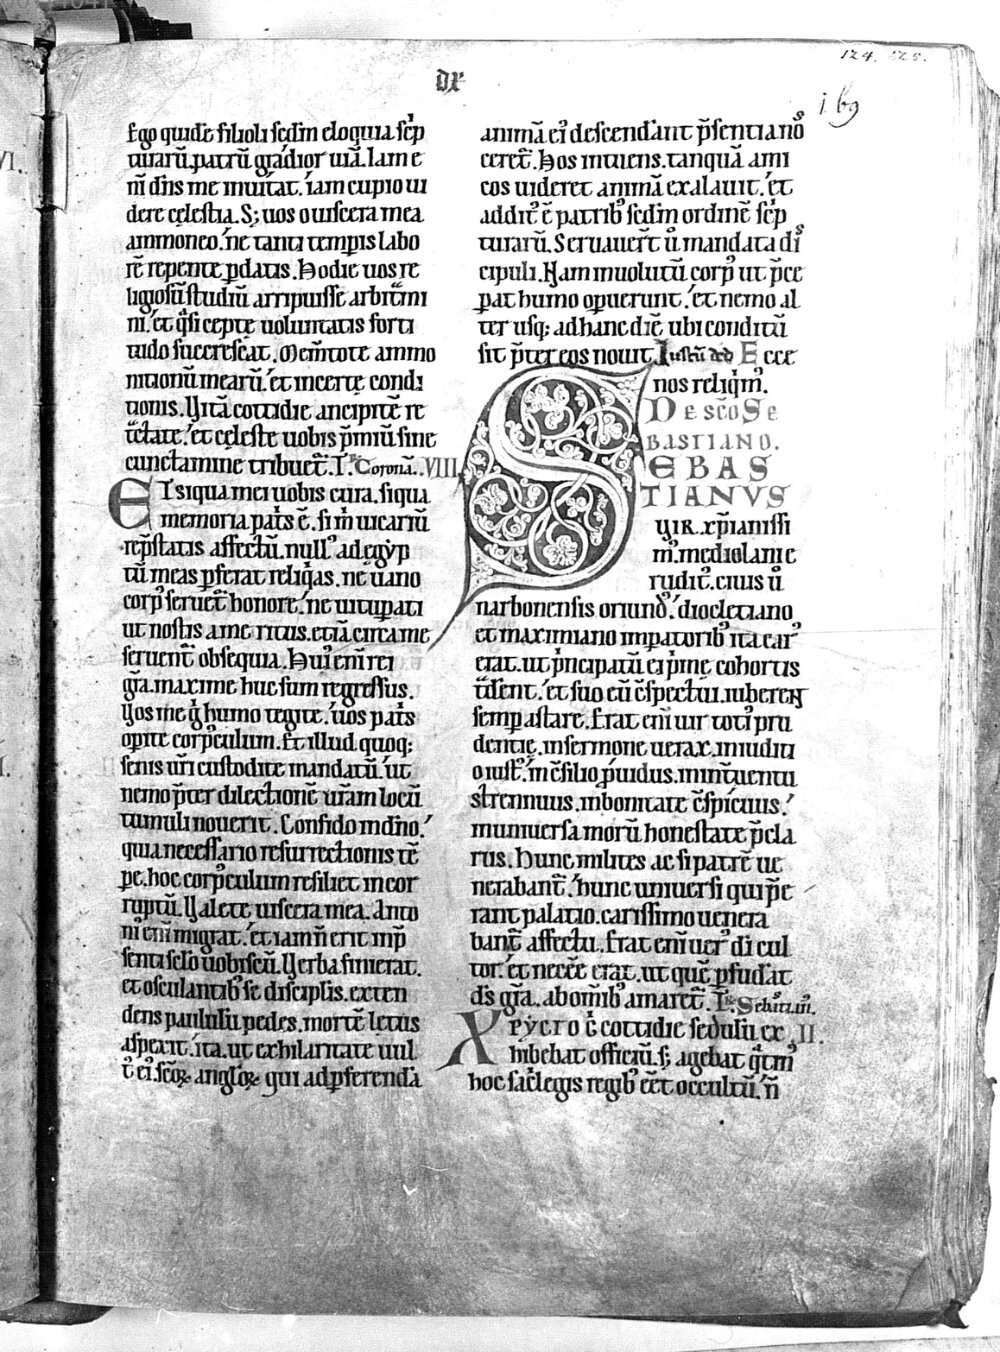 124. 125.
169
dx
VI.
Ego quidē filioli scdm eloquia scp
turarū patrū gradior uiā. Iam e
nī dn̄s me inuitat. iam cupio ui
dere cęlestia. S; uos o uiscera mea
ammoneo. ne tanti temp̄is labo
rē repente p̱datis. Hodie uos re
ligiosū studiū arripuisse arbitmi
ni. et q̇si cepte uoluntatis forti
tudo succrescat. Mem̄tote ammo
nitionū mearū. et incertę condi
tionis. Vitā cottidie ancipitē re
tractate. et cęleste uobis p̄miū sine
cunctamine tribuet᷑. R. Coronā. VIII.
ET siqua mei uobis cura. siqua
memoria pat̄s ē. si m̄ uicariū
rep̄statis affectū. null᷒ ad egyp
tū meas p̱ferat reliq̇as. ne uano
corp᷒ seruet᷑ honore. ne uitupati
ut nostis a me ritus. etiā circa me
seruent᷑ obsequia. Hui᷒ enī rei
gr̄a. maxime huc sum regressus.
Vos me ḡ humo tegite. uos pat̄s
opite corp᷒culum. Et illud quoq;
senis ur̄i custodite mandatū. ut
nemo p̄ter dilectionē ur̄am locū
tumuli nouerit. Confido in dn̄o.
quia necessario resurrectionis tē
pe. hoc corp᷒culum resiliet incor
ruptū. Valete uiscera mea. Anto
ni᷒ enī migrat. et iam n̄ erit in p̄
senti sclo uobiscū. Verba finierat.
et osculantib᷒ se disciplis. exten
dens paululū pedes. mortē letus
aspexit. ita. ut exhilaritate uul
t᷒ ei᷒ scōꝝ angloꝝ. qui ad p̱ferendā
animā ei᷒ descend᷑ant p̄sentia nos̊
ceret᷑. Hos intuens. tanquā ami
cos uideret animā exalauit. et
addit᷒ ē patrib᷒ scdm ordinē scp
turarū. Seruauer̄t ū mandata dis̊
cipuli. Nam inuolutū corp᷒ ut p̄ce
pat humo opuerunt. et nemo al
ter usq; ad hanc diē. ubi conditū
sit p̄ter eos nouit. Iustū ded Ecce
nos reliq̇m᷒.
De scō Se
BASTIANO.
SEBAS
TIANVS
VIR. xp̄ianissi
m᷒. mediolanie
rudit᷒. cuius ū
narbonensis oriund᷒. diocletiano
et maximiano impatorib᷒ ita car᷒
erat. ut p̓ncipatū ei p̓me cohortis
t̄dent. et suo eū ꝯspectui. iuberent
semp astare. Erat enī uir toti᷒ pru
dentię. in sermone uerax. in iuditi
o iust᷒. in ꝯsilio p̄uidus. in int᷑uentu
strennuus. in bonitate ꝯspicuus.
in uniuersa morū honestate p̄cla
rus. Hunc milites ac si patrē ue
nerabant᷑. hunc uniuersi qui p̄e
rant palatio. carissimo uenera
bant᷑ affectu. Erat enī uer᷒ dī cul
tor. et necēe erat. ut quē p̱fud᷑at
dī gr̄a. ab omīb᷒ amaret᷑. R. Sebastian᷒.
XPYCTO ġ cottidie sedulū ex II.
hibebat officiū. s; agebat q̇tin᷒
hoc sac̓legis regib᷒ eēt occultū. n̄